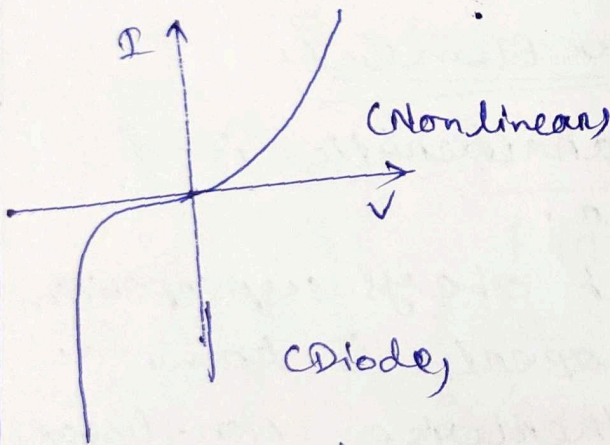 I
(Nonlinear)
V
(Diode)